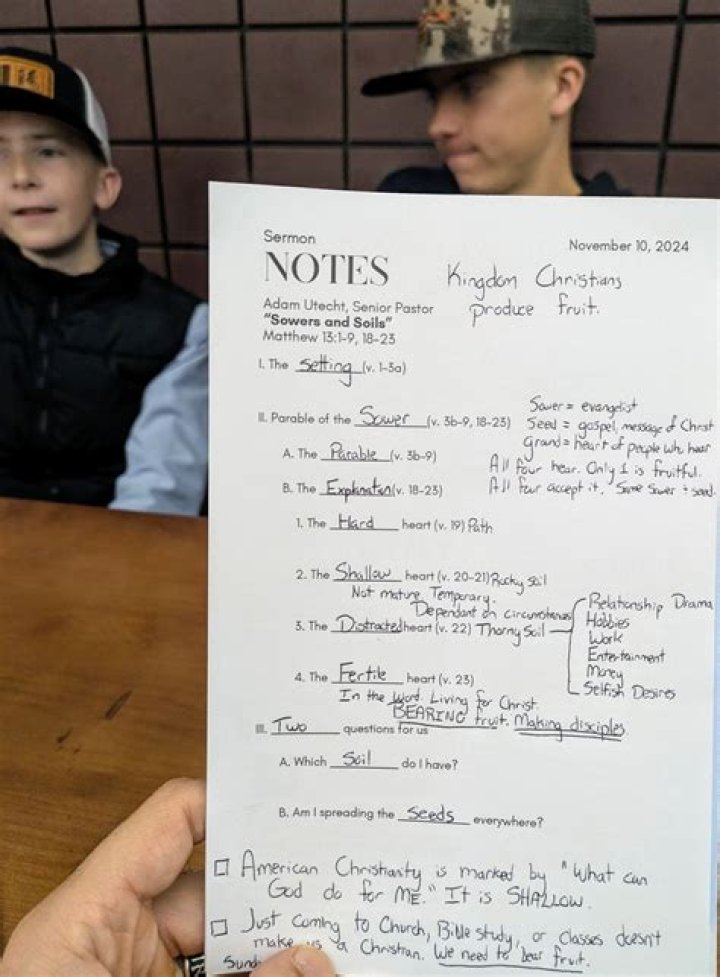 Sermon
NOTES
November 10, 2024
Kingdom Christians
produce fruit.
Adam Utecht, Senior Pastor
"Sowers and Soils"
Matthew 13:1-9, 18-23
I. The Setting (v. 1-3a)
II. Parable of the Sower (v. 3b-9, 18-23)
Sower = evangelist
Seed = gospel, message of Christ
Ground = heart of people who hear
All four hear. Only 1 is fruitful.
All four accept it. Same Sower + seed.
A. The Parable (v. 3b-9)
B. The Explanation (v. 18-23)
1. The Hard heart (v. 19) Path
2. The Shallow heart (v. 20-21) Rocky Soil
Not mature. Temporary.
Dependant on circumstances
3. The Distracted heart (v. 22) Thorny Soil
Relationship Drama
Hobbies
Work
Entertainment
Money
Selfish Desires
4. The Fertile heart (v. 23)
In the Word. Living for Christ.
BEARING fruit. Making disciples
III. Two questions for us
A. Which Soil do I have?
B. Am I spreading the seeds everywhere?
American Christianity is marked by "What can
God do for ME." It is SHALLOW.
Just coming to Church, Bible study, or classes doesn't
make us a Christian. We need to bear fruit.